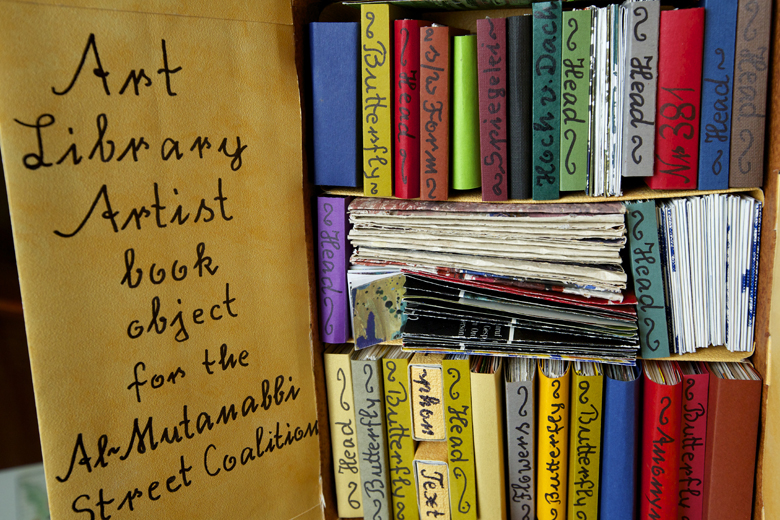 Art
Library
Artist
book
object
for the
Al-Mutanabbi
Street Coalition
Butterfly
Head
s/w Form
Spiegelei
Hoch v. Dach
Head
Head
Nr 381
Head
Head
Head
Head
Head
Butterfly
Butterfly
Text
Head
Flowers
Butterfly
Butterfly
Anonym
Butterfly